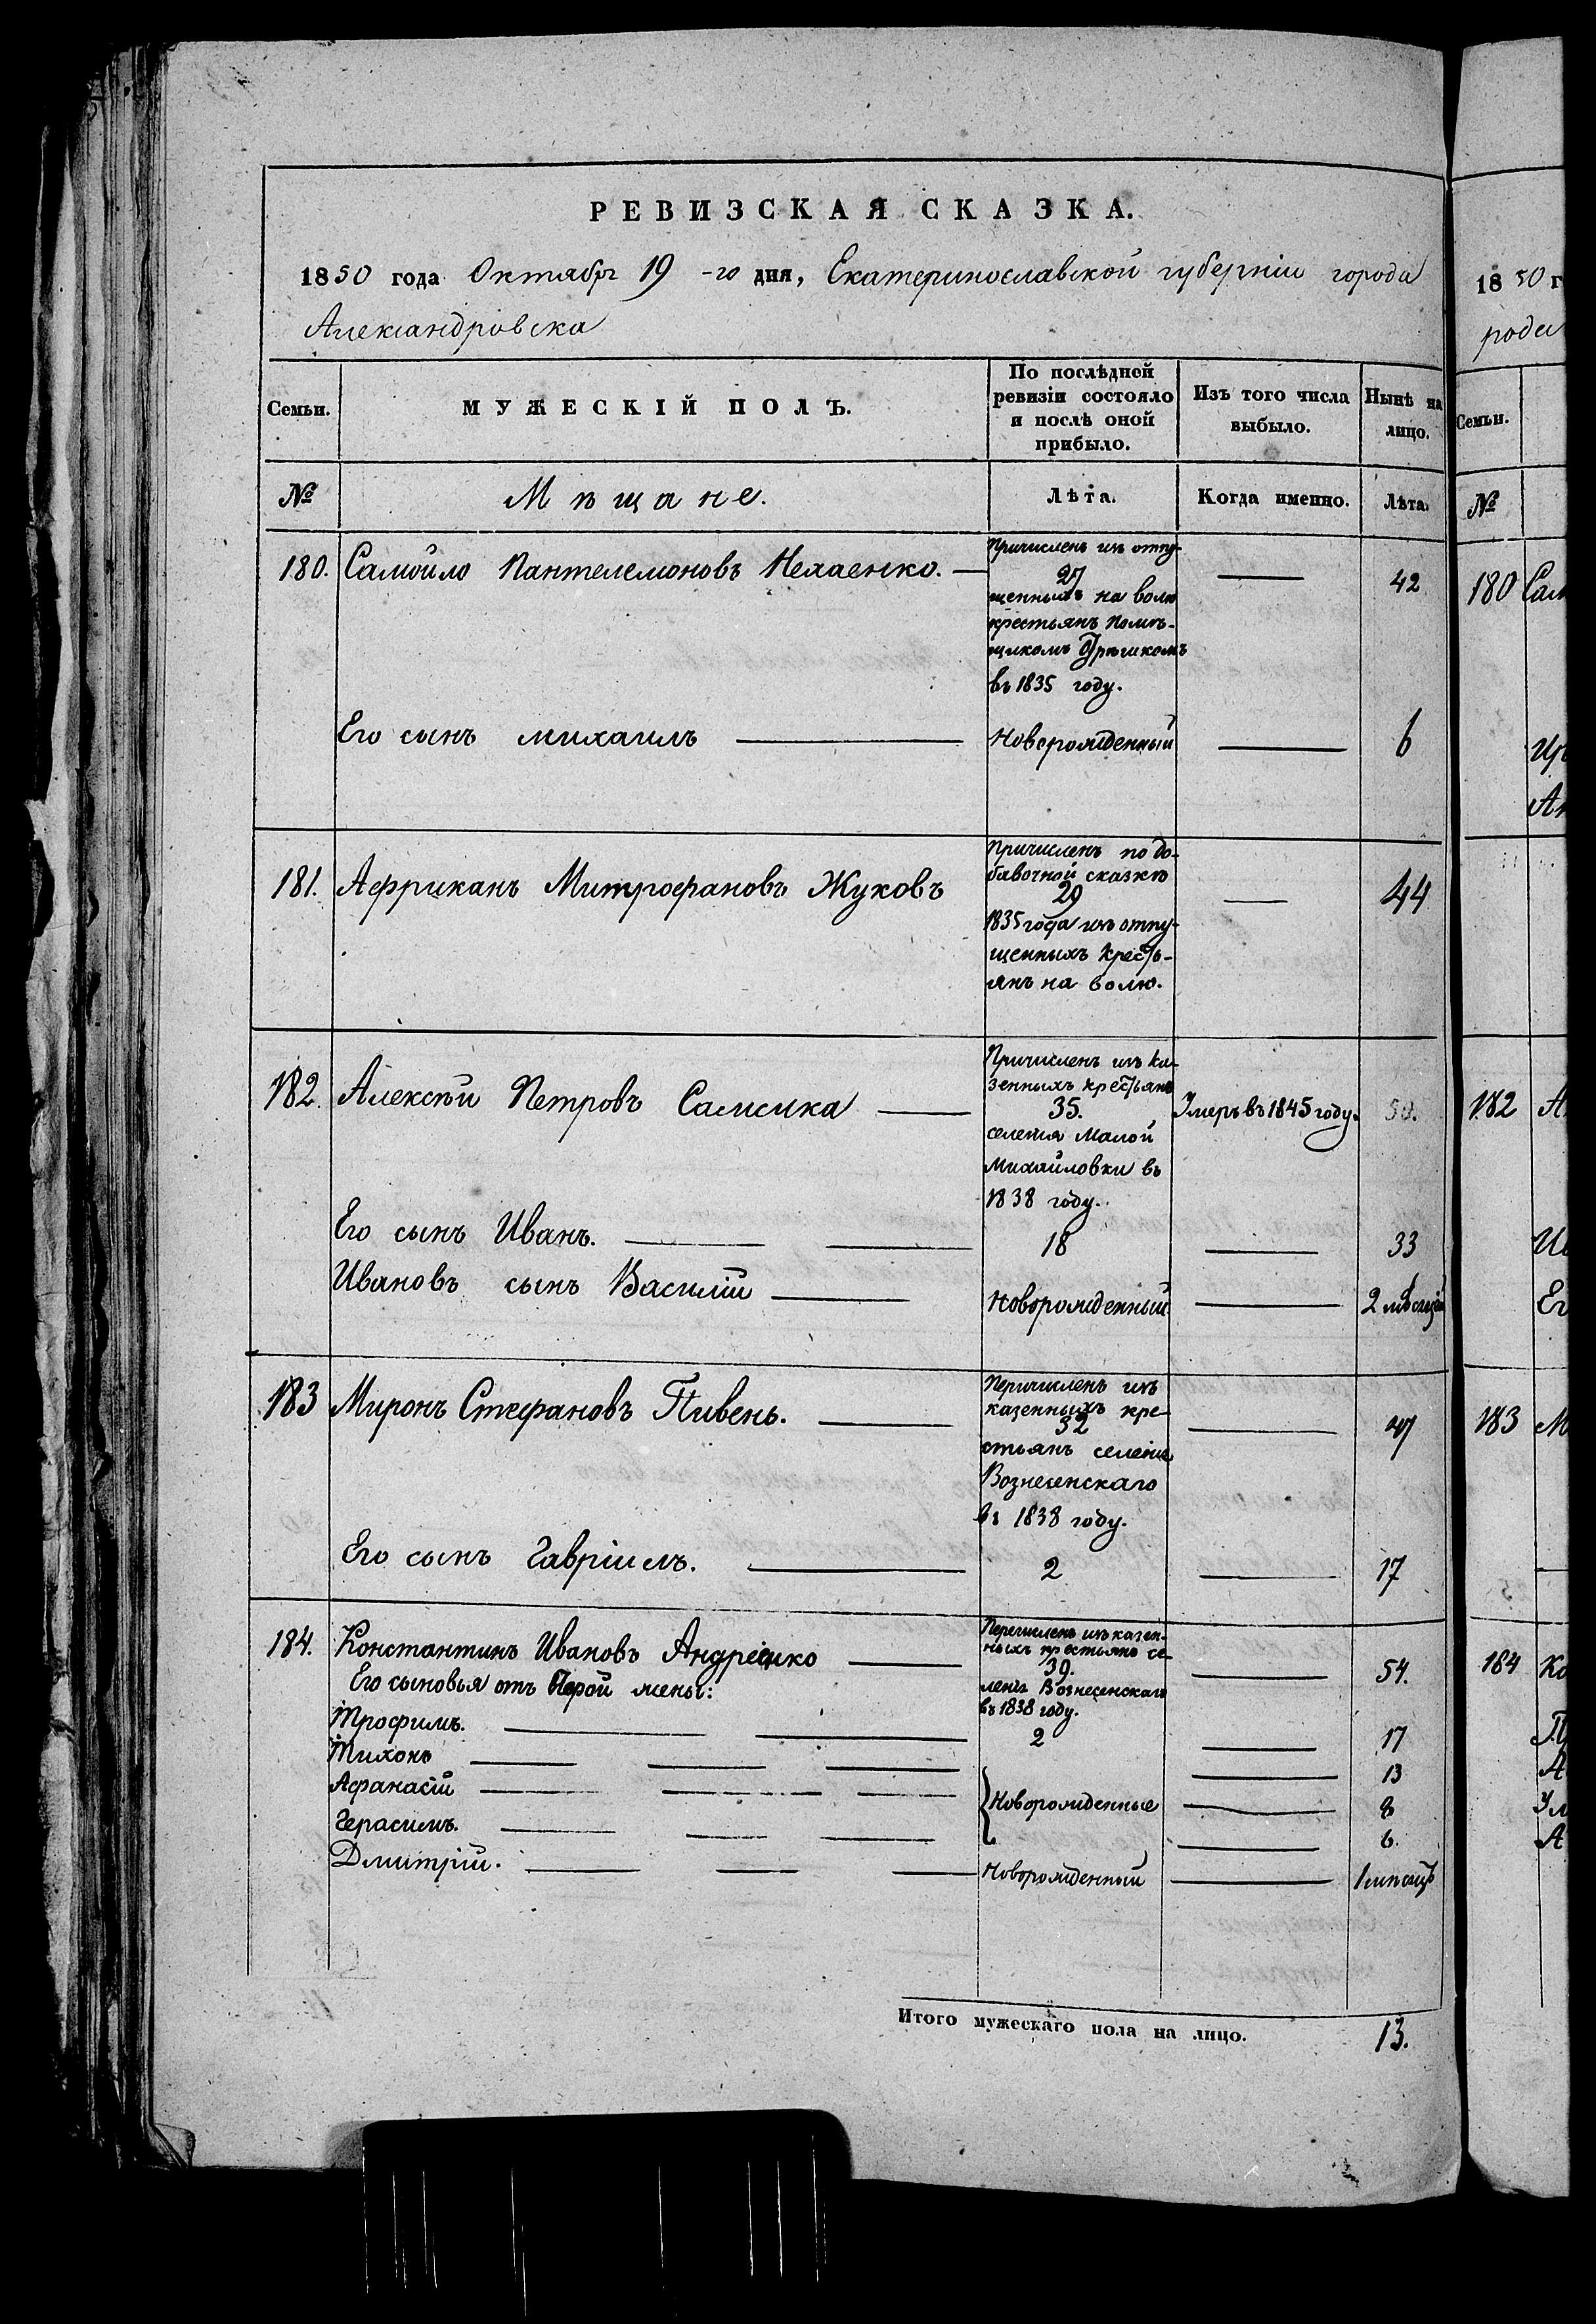 РЕВИЗСКАЯ СКАЗКА.
1850 года Октября 19-го дня, Екатеринославской губерніи города
Александровска
Семьи.
МУЖЕСКІЙ ПОЛЪ.
По послѣдней ревизіи состояло и послѣ оной прибыло.
Изъ того числа выбыло.
Нынѣ на лицо.
№
Мѣщане.
Лѣта.
Когда именно.
Лѣта.
180. Самойло Пантелемоновъ Нехаенко. — 27 — 42
Причисленъ изъ отпу-
щенныхъ на волю
крестьянъ помѣ-
щикомъ
въ 1835 году.
Его сынъ михаилъ — Новорожденный — 6
181. Африканъ Митрофановъ Жуковъ 29 — 44
Причисленъ по до-
бавочной сказкѣ
1835 года изъ отпу-
щенныхъ кресть-
янъ на волю.
182. Алексѣй Петровъ Самсика — 35. Умеръ въ 1845 году. 50.
Причисленъ изъ ка-
зенныхъ крестьянъ
селенія Малой
Михайловки въ
1838 году.
Его сынъ Иванъ. — 18 — 33
Ивановъ сынъ Василій — Новорожденный — 2 мѣсяца
183 Миронъ Стефановъ Пивень. — 32 — 47
Перичисленъ изъ
казенныхъ кре-
стьянъ селенія
Вознесенскаго
въ 1838 году.
Его сынъ Гавріилъ. — 2 — 17
184. Константинъ Ивановъ Андреенко — 39. — 54.
Перечисленъ изъ казен-
ныхъ крестьянъ се-
ленія Вознесенскаго
въ 1838 году.
Его сыновья отъ жены:
Трофимъ. — 2 — 17
Тихонъ — 13
Афанасій — Новорожденные — 8
Герасимъ. — 6.
Дмитрій. — Новорожденный — 1 мѣсяцъ
Итого мужескаго пола на лицо. 13.
1850 г
рода
Семьи.
№
180 Сам
182 А
Ив
Ег
183 М
184 Ко
А
А